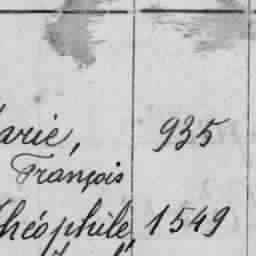 arie, 935
François
Théophile, 1549